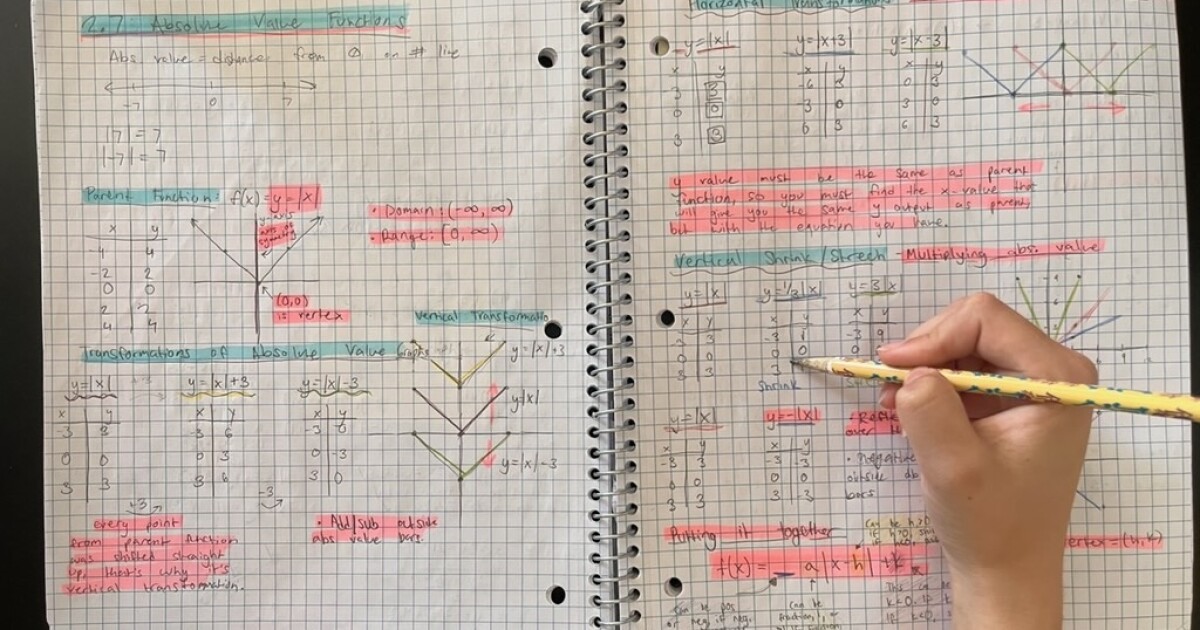 2.7 Absolute Value Functions
Abs value = distance from 0 on # line
-7 0 7
|7| = 7
|-7| = 7
Parent Function: f(x) = y = |x|
x y
-4 4
-2 2
0 0
2 2
4 4
y-axis
axis of
symmetry
(0,0)
is vertex
• Domain: (-∞, ∞)
• Range: [0, ∞)
Transformations of Absolute Value Graphs
y=|x|
x y
-3 3
0 0
3 3
y=|x|+3
x y
-3 6
0 3
3 6
y=|x|-3
x y
-3 0
0 -3
3 0
+3
-3
Vertical Transformatio
y=|x|+3
y=|x|
y=|x|-3
every point
from parent function
was shifted straight
up, that's why it's
vertical transformation.
• Add/sub outside
abs value bars.
Horizontal
y=|x|
x y
3 3
0 0
3 3
y=|x+3|
x y
-6 3
-3 0
0 3
y=|x-3|
x y
0 3
3 0
6 3
y value must be the same as parent
function, so you must find the x-value that
will give you the same y output as parent,
but with the equation you have.
Vertical Shrink/Strech - Multiplying abs. value
y=|x|
x y
-3 3
0 0
3 3
y=1/2|x|
x y
-3
0 0
3
Shrink
y=3|x|
x y
-3 9
0
y=|x|
x y
-3 3
0 0
3 3
y=-|x|
x y
-3 -3
0 0
3 -3
over
• negative
outside
bars
Putting it together
f(x) = _ a |x-h| + k
can be h>0
vertex = (h,k)
can be pos
or neg, if neg,
can be
fraction,
This
k<0, if